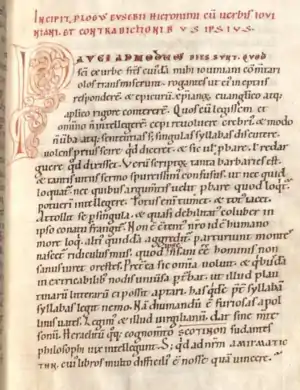 INCIPIT, PLOGVS EVSEBII HIERONIMI CŪ VERBIS IOVI
NIANI, ET CONTRADICTIONIBVS IPSIVS.
PAVCI ADMODVM DIES SVNT, QVOD
sc̄i ex urbe frēs cuiusdā mihi iouiniani cōmtari
olos transmiserunt. rogantes ut eī ineptiis
responderē. & epicurū xpianę. euanglico atq;
aplico uigore contererē. Quos cū legissem. et
omnino ñ intellegerē. cępi reuoluere crebrī. & modo
ñ uba atq; sententias. s; singulas syllabas discutere.
uolens pri scire qd diceret. & sic ut phare. t redar
guere qd dixisset. Verū scriptoꝝ tanta barbaries est.
& tantis uitiis sermo spurcissim confusus. ut nec quid
loquat. nec quibus argumtis uelit phare quod loqr.
potueri intellegere. Totus eni tumet. & tot iacet.
Attollit se p singula. & quasi debilitat coluber in
ipso conatu frangit. Non ē content nro id ē humano
more loq. alti quiddā aggredit. parturiunt montes
nascet ridiculus mus. quod ipse
sanus iuret orestes. Pręterea sic omia uoluit. & qbusdā
inextricabilib; nodis uniūsa pturbat. ut illud plau
tinarū litterarū ei possit aptari. has qde p̄t syllabā
syllabas legit nemo. Nā diuinandū ē furiosas apol
linis uates. Legim & illud uirgilianū. dat sine mte
sonū. Heraclitū qq; cognomto SCOTINON sudantes
philosophi uix intellegunt. S; qd ad nrm AINIGMATIC
THN. cui libros multo difficili ē nosse quā uincere.